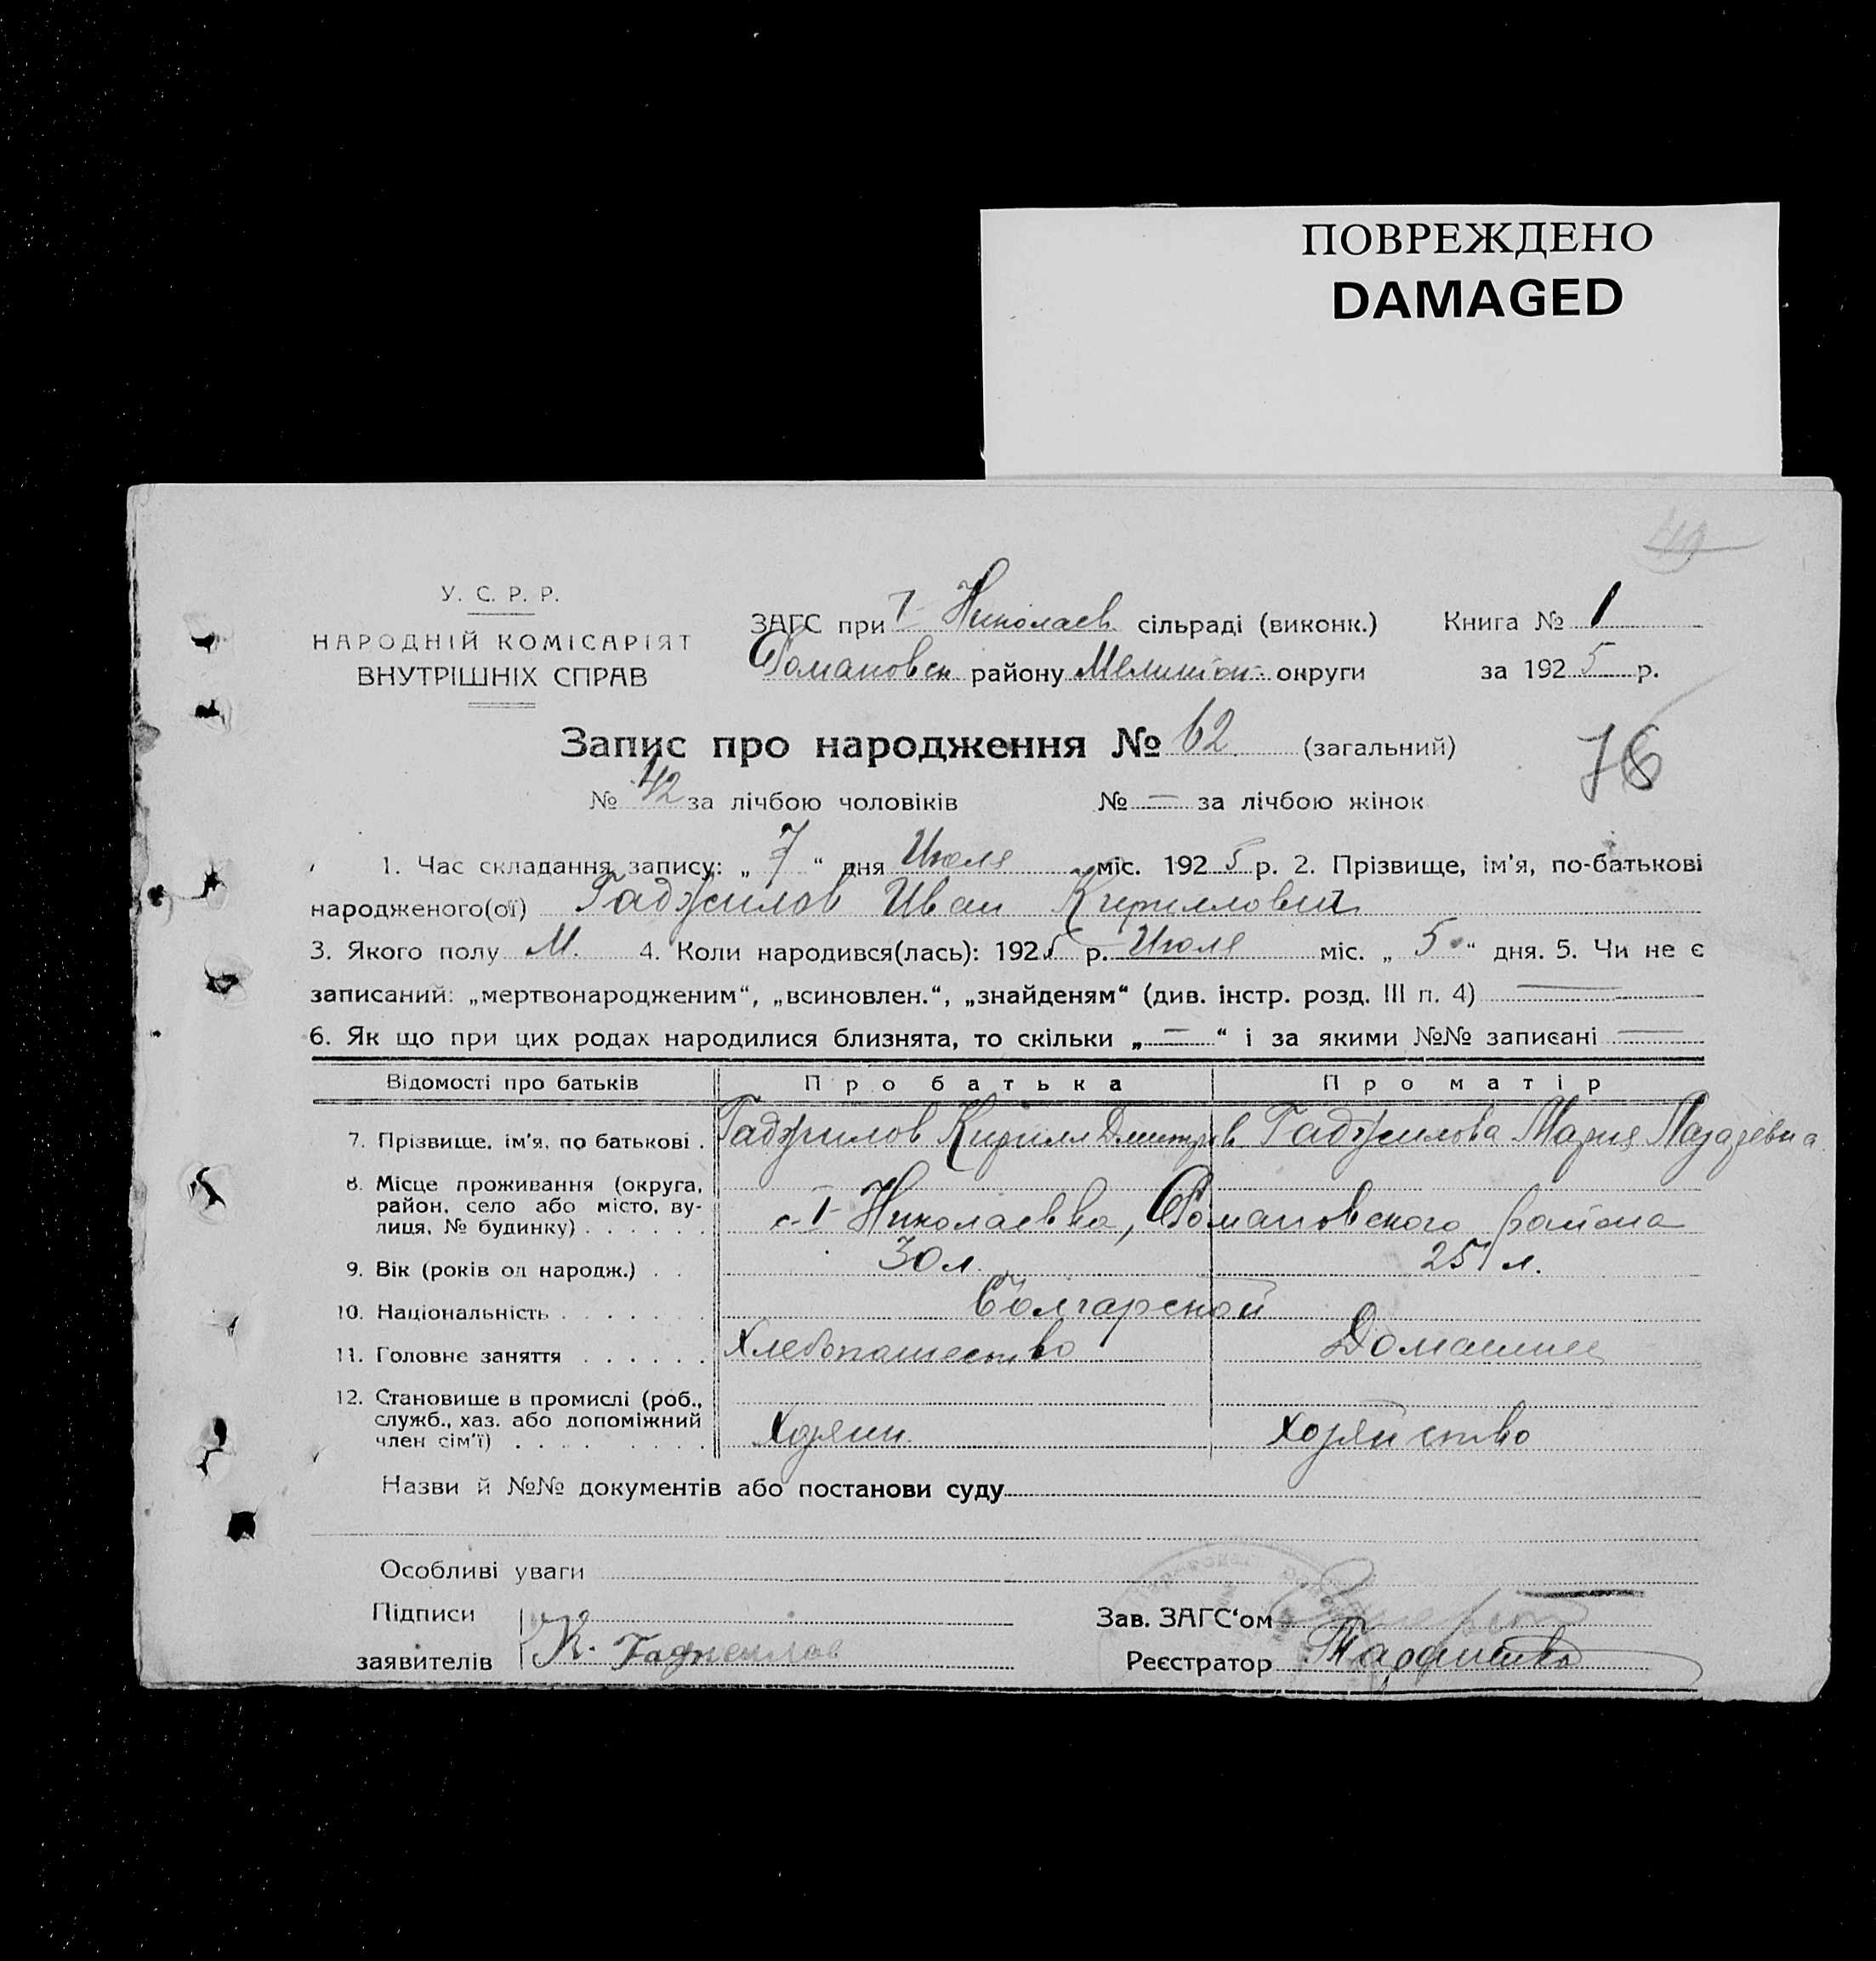 ПОВРЕЖДЕНО
DAMAGED
49
У. С. Р. Р.
НАРОДНІЙ КОМІСАРІЯТ
ВНУТРІШНІХ СПРАВ
ЗАГС при I- Николаев. сільраді (виконк.) Книга № 1
Романовск району Мелитоп. округи за 1925 р.
Запис про народження № 62. (загальний)
76
№ 42 за лічбою чоловіків № — за лічбою жінок
1. Час складання запису: „ 7 “ дня Июля міс. 1925 р. 2. Прізвище, ім'я, по-батькові
народженого(ої) Гаджилов Иван Кириллович
3. Якого полу М. 4. Коли народився(лась): 1925 р. Июля міс. „ 5 “ дня. 5. Чи не є
записаний: „мертвонародженим“, „всиновлен.“, „знайденям“ (див. інстр. розд. III п. 4) —
6. Як що при цих родах народилися близнята, то скільки „ — “ і за якими №№ записані —
Відомості про батьків Про батька Про матір
7. Прізвище, ім'я, по батькові . Гаджилов Кирилл Дмитров Гаджилова Мария Лазаревна
8. Місце проживання (округа,
район, село або місто, ву-
лиця, № будинку) . . . . . . с. I- Николаевка, Романовского района
9. Вік (років од народж.) . . 30 л. 25 л.
10. Національність . . . . . . . Болгарской
11. Головне заняття . . . . . . Хлебопашество Домашнее
12. Становище в промислі (роб.,
служб., хаз. або допоміжний
член сім'ї) . . . . . . . . . Хозяин. хозяйство
Назви й №№ документів або постанови суду
Особливі уваги
Підписи Зав. ЗАГС‘ом
заявителів К. Гаджилов Реєстратор